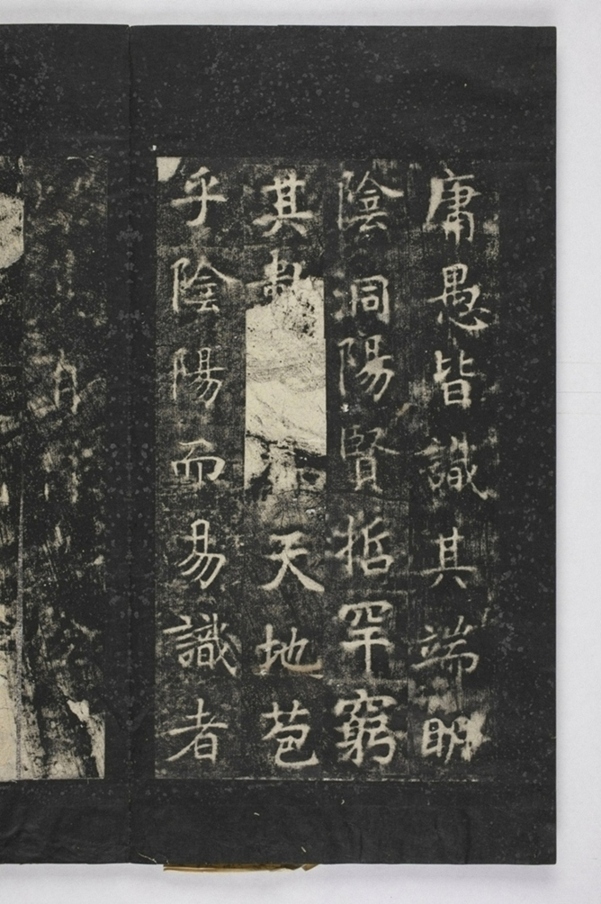 庸愚皆識其端明
陰洞陽賢哲罕窮
其數天地苞
乎陰陽而易識者